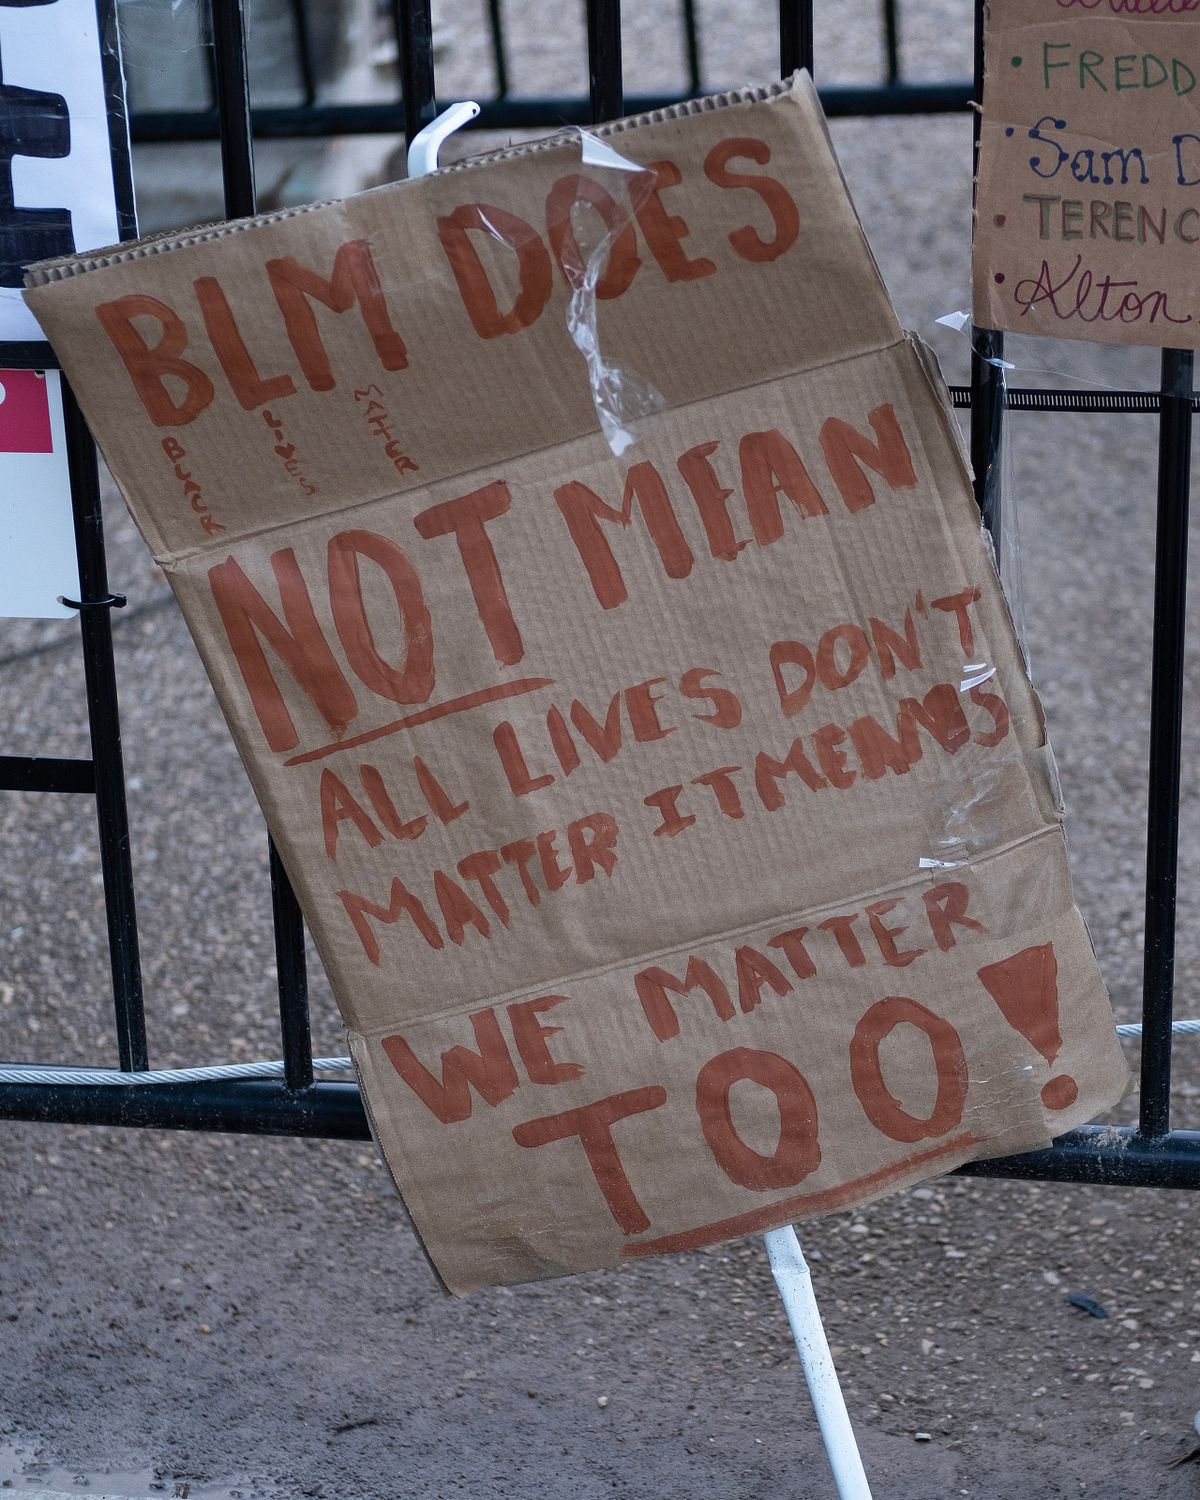 BLM DOES
BLACK LIVES MATTER
NOT MEAN
ALL LIVES DON'T
MATTER IT MEANS
WE MATTER
TOO!
• FREDD
• Sam D
• TERENC
• Alton